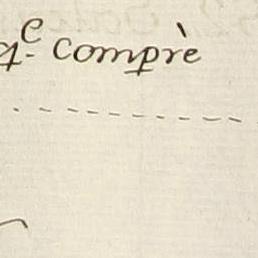 4.e comprè